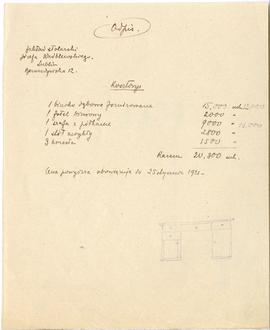 Odpis.
Zakład stolarski
Józefa Wróblewskiego.
Lublin
Bernardyńska 12.
Kosztorys
1 biurko dębowe fornirowane 15,000 mk 12,000
1 fotel 2000 "
1 szafa z półkami 9000 "
1 stół zwykły 2800 "
3 krzesła 1500 "
Razem 20,300 mk.
Cena powyższa obowiązuje do 25 stycznia 1921.